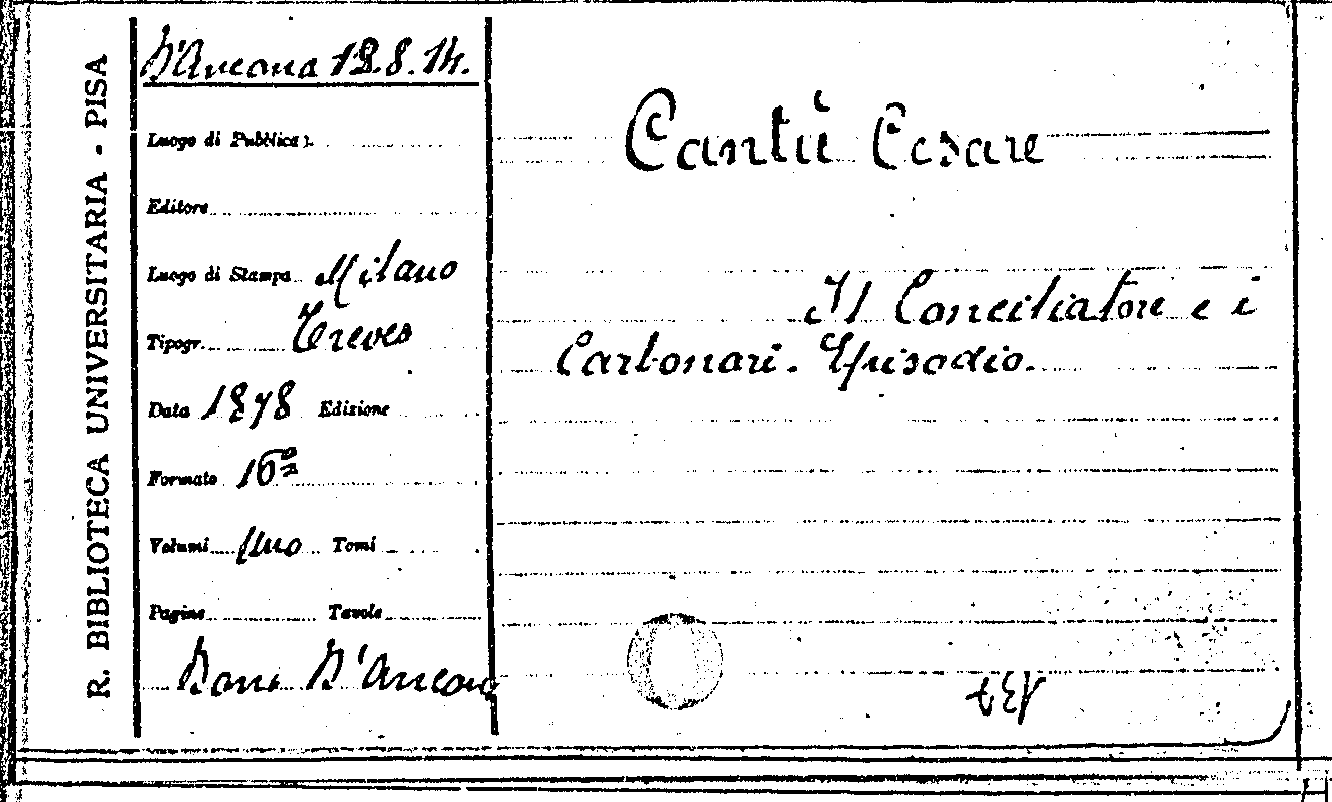 R. BIBLIOTECA UNIVERSITARIA - PISA
D'Ancona 12.8.14.
Luogo di Pubblicaz.
Editore
Luogo di Stampa Milano
Tipogr. Treves
Data 1878 Edizione
Formato 16º
Volumi uno Tomi
Pagine Tavole
Dono D'Ancona
Cantù Cesare
Il Conciliatore e i
Carbonari. Episodio.